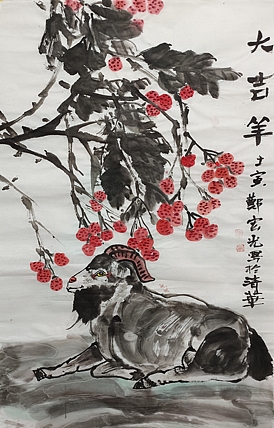 大吉羊
壬寅鄭宏光写於清華